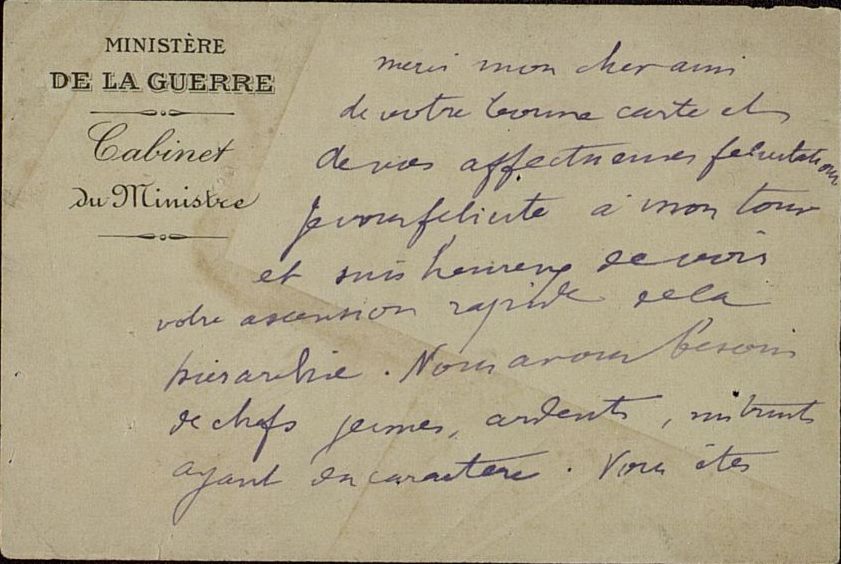 MINISTÈRE
DE LA GUERRE
Cabinet
du Ministre
merci mon cher ami
de votre bonne carte et
de vos affectueuses felicitations
Je vous felicite à mon tour
et suis heureux de voir
votre ascension rapide de la
hierarchie. Nous avons besoin
de chefs jeunes, ardents, instruits
ayant du caractère. Vous êtes